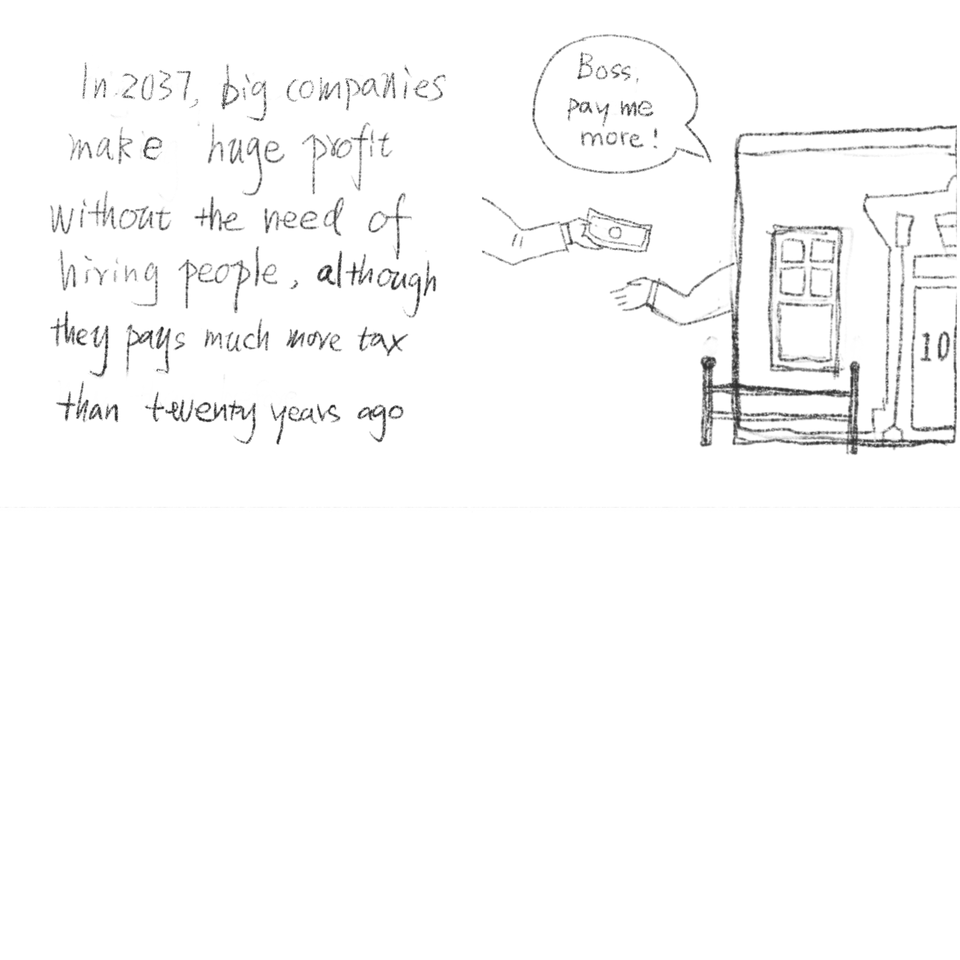 In 2037, big companies
make huge profit
without the need of
hiring people, although
they pays much more tax
than twenty years ago
Boss,
pay me
more!
10